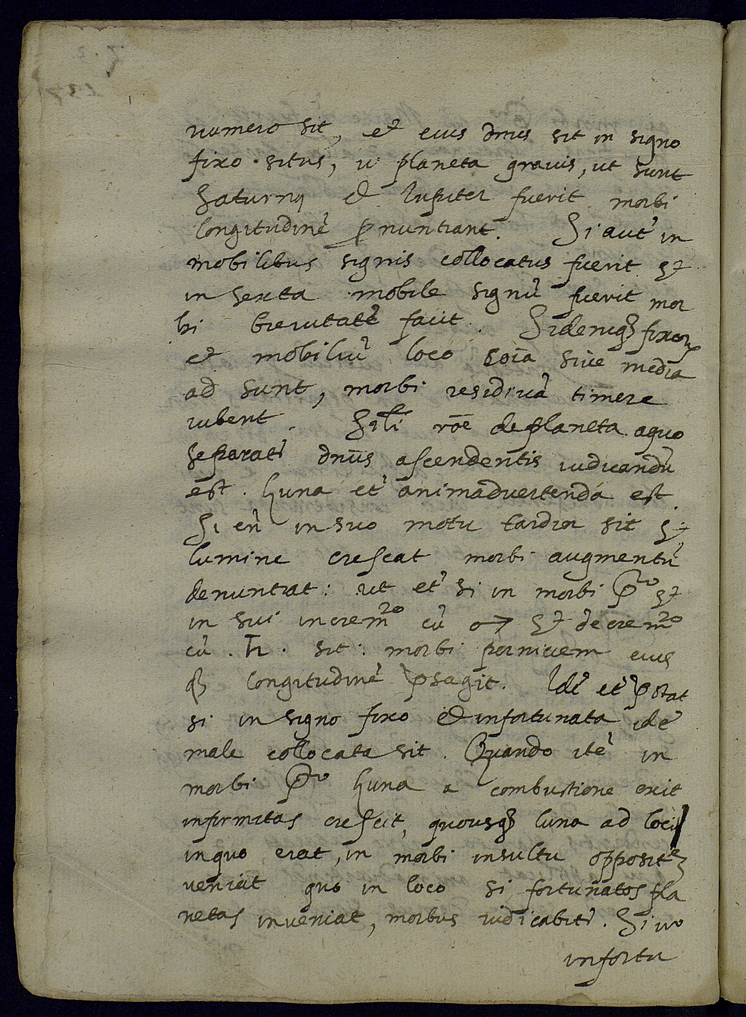 numero sit, et eius dñus sit in signo
fixo situs, vĩ planeta gravis, ut sunt
Saturnꝰ et Iupiter fuerit morbi
longitudinẽ ꝓnuntiant. Si aut̃ in
mobilibus signis collocatus fuerit et
in sexta mobile signũ fuerit mor
bi brevitatẽ facit. Si deniqꝫ fixoꝝ
et mobiliũ loco coĩa sive media
ad sunt, morbi residivã timere
iubent. Sĩli rõe de planeta a quo
separatĩ dñus ascendentis iudicandũ
est. Luna et̃ animadvertenda est.
Si eñ in suo motu tardior sit et
lumine crescat morbi augmentũ
denuntiat: ut et̃ si in morbi pº et
in sui increm̃to cũ ♂ et decrem̃to
cũ . ♄ . sit: morbi perniciem eius
qꝫ longitudinẽ p̃sagit. Idẽ et̃ p̃stat
si in signo fixo et infortunata idẽ
male collocata sit. Quando itẽ in
morbi pº Luna a combustione exit
infirmitas crescit, quousqꝫ luna ad locũ
in quo erat, in morbi insultu oppositũ
veniat quo in loco si fortunatos pla
netas inveniat, morbus iudicabit̃. Si vo
infortu